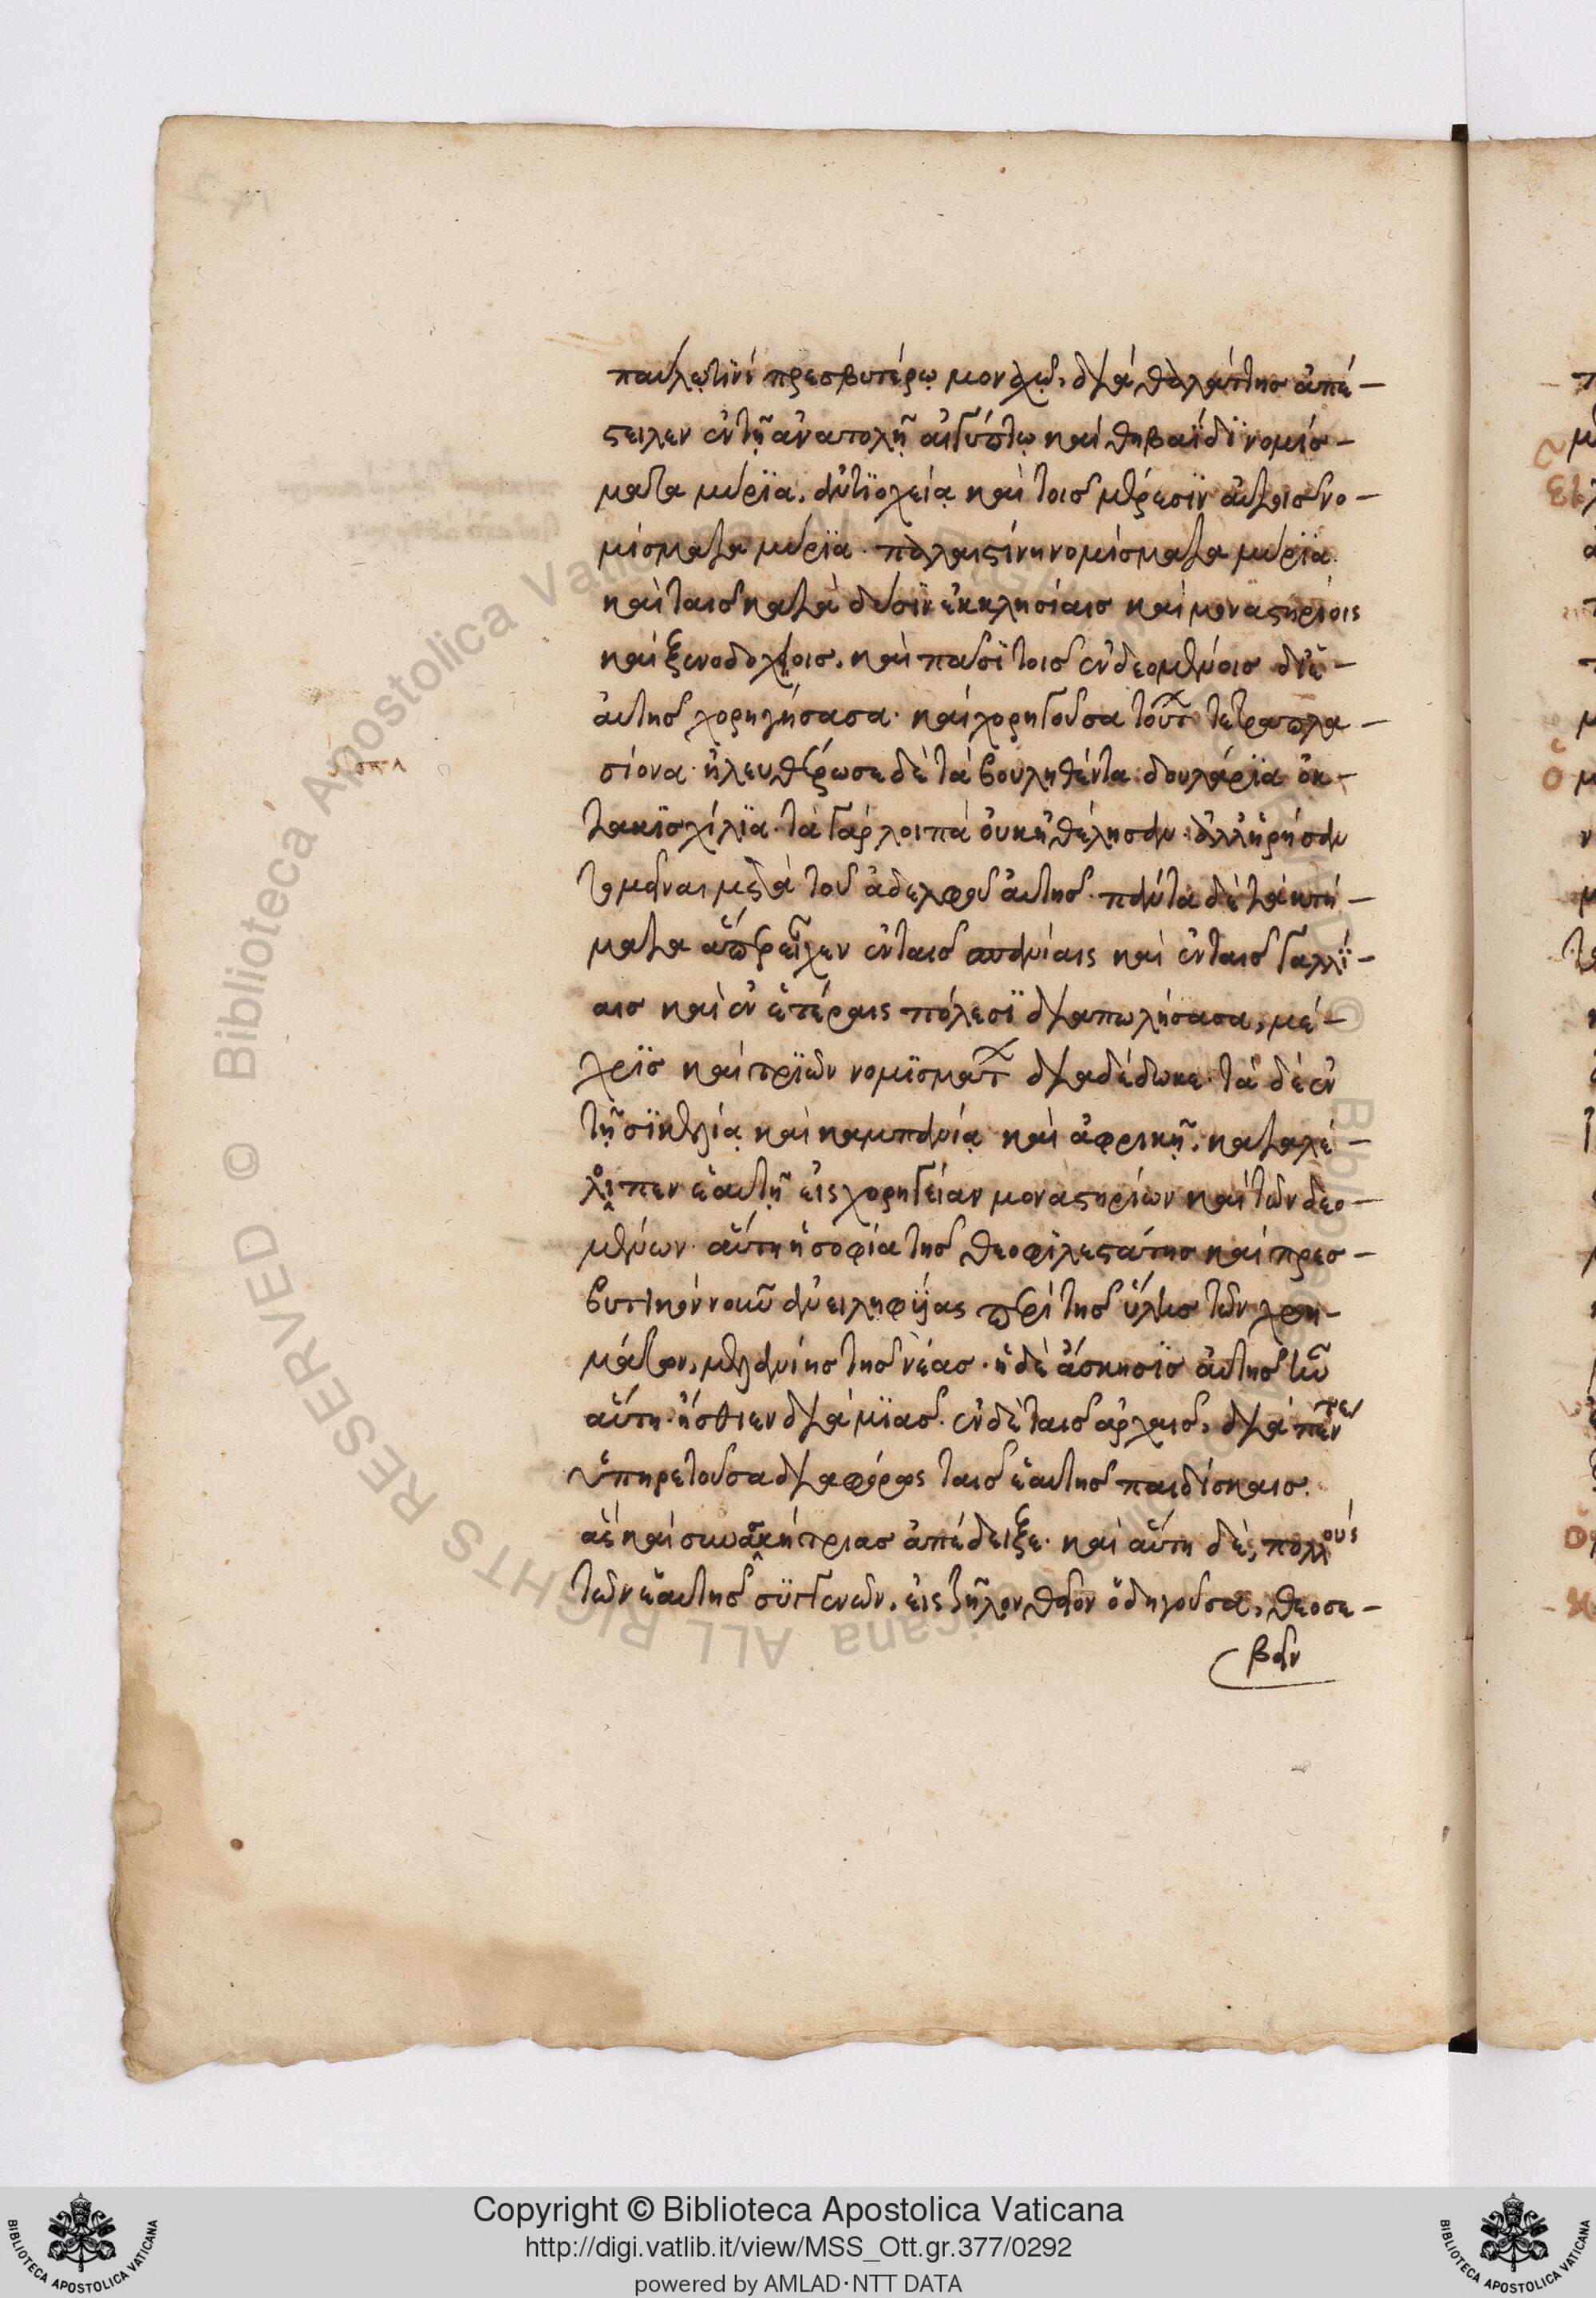 παύλω τινὶ πρεσβυτέρῳ μοναχῷ, διὰ θαλάττης ἀπέ-
στειλεν ἐν τῇ ἀνατολῇ αἰγύπτῳ καὶ θηβαΐδι νομίσ-
ματα μύρϊα, ἀντϊοχείᾳ καὶ τοῖς μέρεσϊν αὐτοῖς νο-
μίσματα μύρϊα· παλαιστίνη νομίσματα μύρϊα.
καὶ ταῖς κατὰ δύσϊν ἐκκλησίαις καὶ μοναστηρίοις
καὶ ξενοδοχείοις, καὶ πᾶσϊ τοῖς ἐνδεομένοις δι' ἑ-
αυτῆς χορηγήσασα· καὶ χορηγοῦσα τούτων τετραπλα-
σίονα· ἠλευθέρωσε δὲ τὰ βουληθέντα δουλάρϊα ὀκ-
τακϊσχίλϊα· τὰ γὰρ λοιπὰ οὐκ ἠθέλησαν· ἀλλ' ᾑρήσαν
το μεῖναι μετὰ τοῦ ἀδελφοῦ αὐτῆς· πάντα δὲ τὰ κτή-
ματα ἅπερ εἶχεν ἐν ταῖς σπανίαις καὶ ἐν ταῖς γαλλΐ-
αις καὶ ἐν ἑτέραις πόλεσϊ διαπωλήσασα, μέ-
χρϊς καὶ τρϊῶν νομϊσμάτων διαδέδωκε· τὰ δὲ ἐν
τῇ σϊκελίᾳ καὶ καμπανίᾳ καὶ ἀφρικῇ, καταλέ-
λοιπεν ἑαυτῇ εἰς χορηγείαν μοναστηρίων καὶ τῶν δεο-
μένων· αὕτη ἡ σοφία τῆς θεοφϊλεστάτης καὶ πρεσ-
βυτικὸν νοῦν ἀνειληφυίας περὶ τῆς ὕλης τῶν χρη-
μάτων, μελανίης τῆς νέας· ἡ δὲ ἄσκησϊς αὐτῆς ἦν
αὕτη· ἤσθιεν διὰ μϊᾶς. ἐν δὲ ταῖς ἀρχαῖς, διὰ πέντε
ὑπηρετοῦσα διαφόρως ταῖς ἑαυτῆς παιδίσκαις.
ἃς καὶ συνασκητρίας ἀπέδειξε· καὶ αὕτη δὲ, πολλοὺς
τῶν ἑαυτῆς συγγενῶν, εἰς ζῆλον θεῖον ὁδηγοῦσα, θεοσε-
βεῖν
Copyright © Biblioteca Apostolica Vaticana
http://digi.vatlib.it/view/MSS_Ott.gr.377/0292
powered by AMLAD·NTT DATA